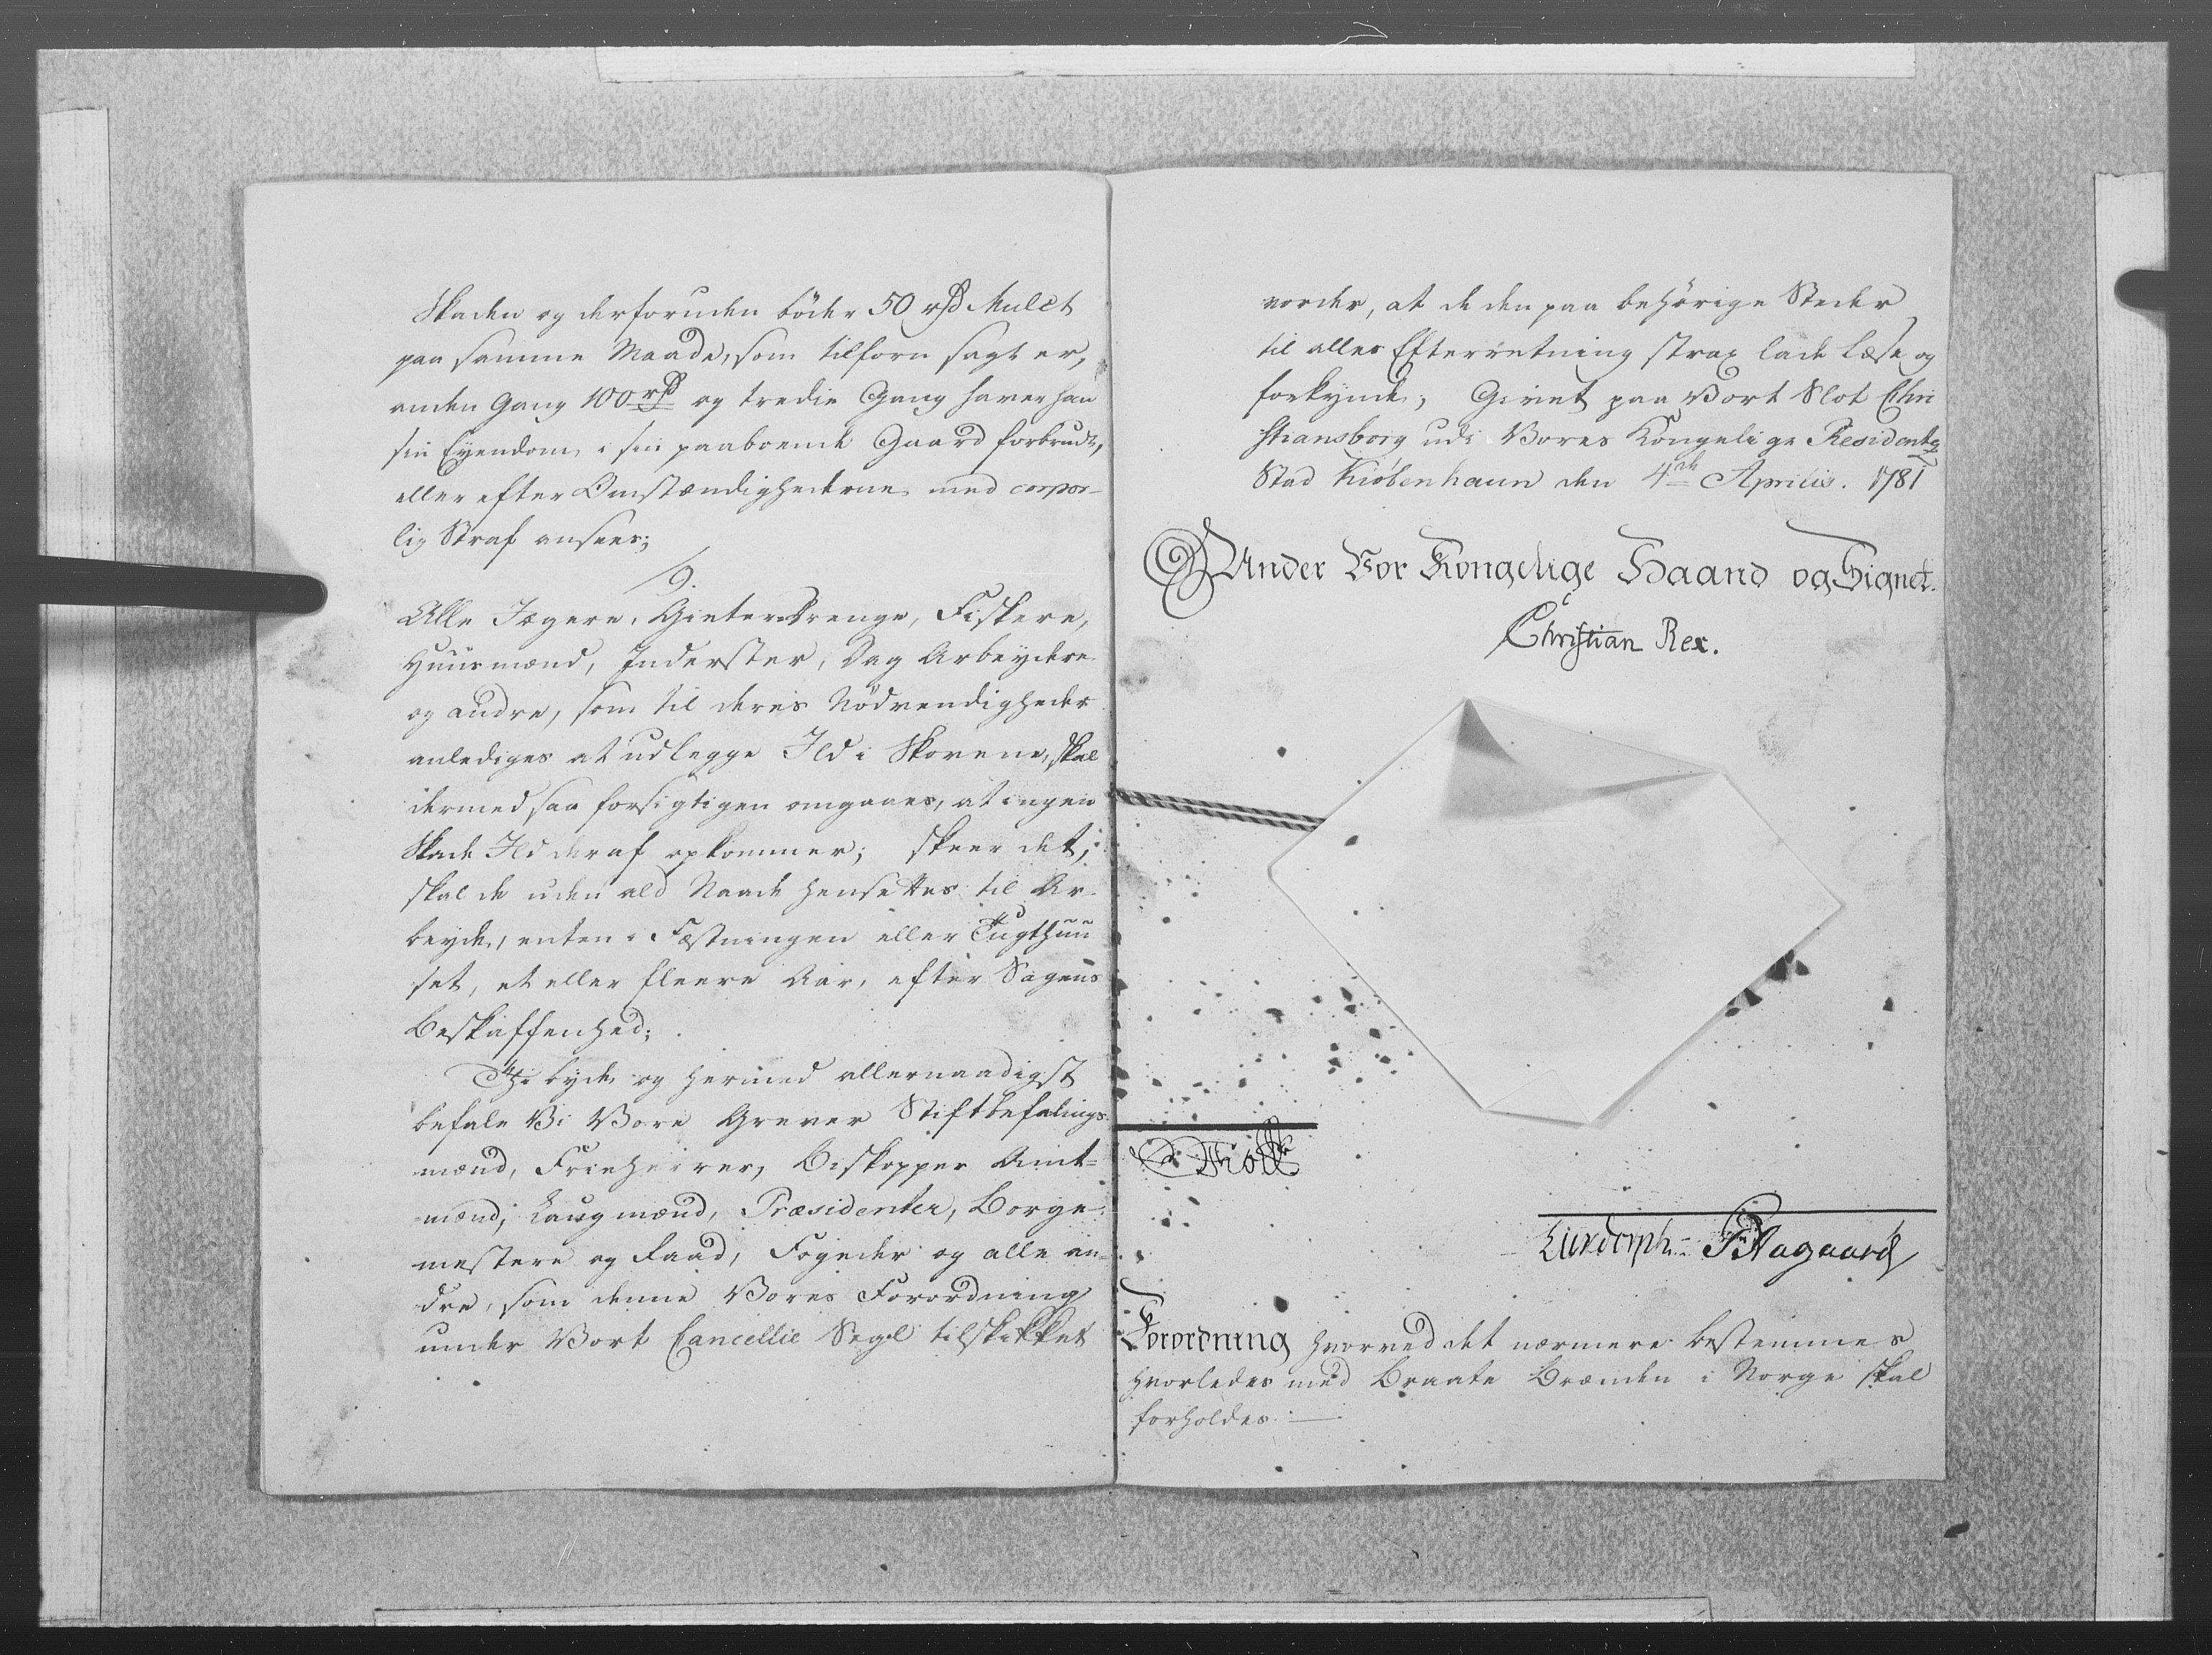 Skaden og desforuden bøder 50 rd Mulct
paa samme Maade, som tilforn sagt er,
anden Gang 100 rd og tredie Gang haver han
sin Eyendom i sin paaboende Gaard forbrudt,
eller efter Omstændighederne med corpor-
lig Straf ansees;
9.
Alle Jægere, Gieterdrenge, Fiskere,
Huusmænd, Inderster, Dag Arbeydere
og andre, som til deres Nødvendigheder
anlediges at udlegge Ild i Skovene, skal
dermed saa forsigtigen omgaaes, at ingen
Skade Ild deraf opkommer; skeer det,
skal de uden ald Naade hensettes til Ar-
beyde, enten i Fæstningen eller Tugthuu
set, et eller fleere Aar, efter Sagens
Beskaffenhed;
Thi byde og hermed allernaadigst
befale Vi Vore Grever Stiftbefalings-
mænd, Frieherrer, Biskopper Amt-
mænd, Laugmænd, Præsidenter, Borge-
mestere og Raad, Fogeder og alle an-
dre, som denne Vores Forordning
under Vort Cancellie Segl tilskikket
vorder, at de den paa behørige Steder
til alles Efterretning strax lade læse og
forkynde; Givet paa Vort Slot Chri
stiansborg udi Vores Kongelige Residentz
Stad Kiøbenhaun den 4de Aprilis. 1781
Under Vor Kongelige Haand og Signet.
Christian Rex.
Luxdorph. Aagaard
Forordning hvorved det nærmere bestemmes
hvorledes med Braate Brænden i Norge skal
forholdes. —